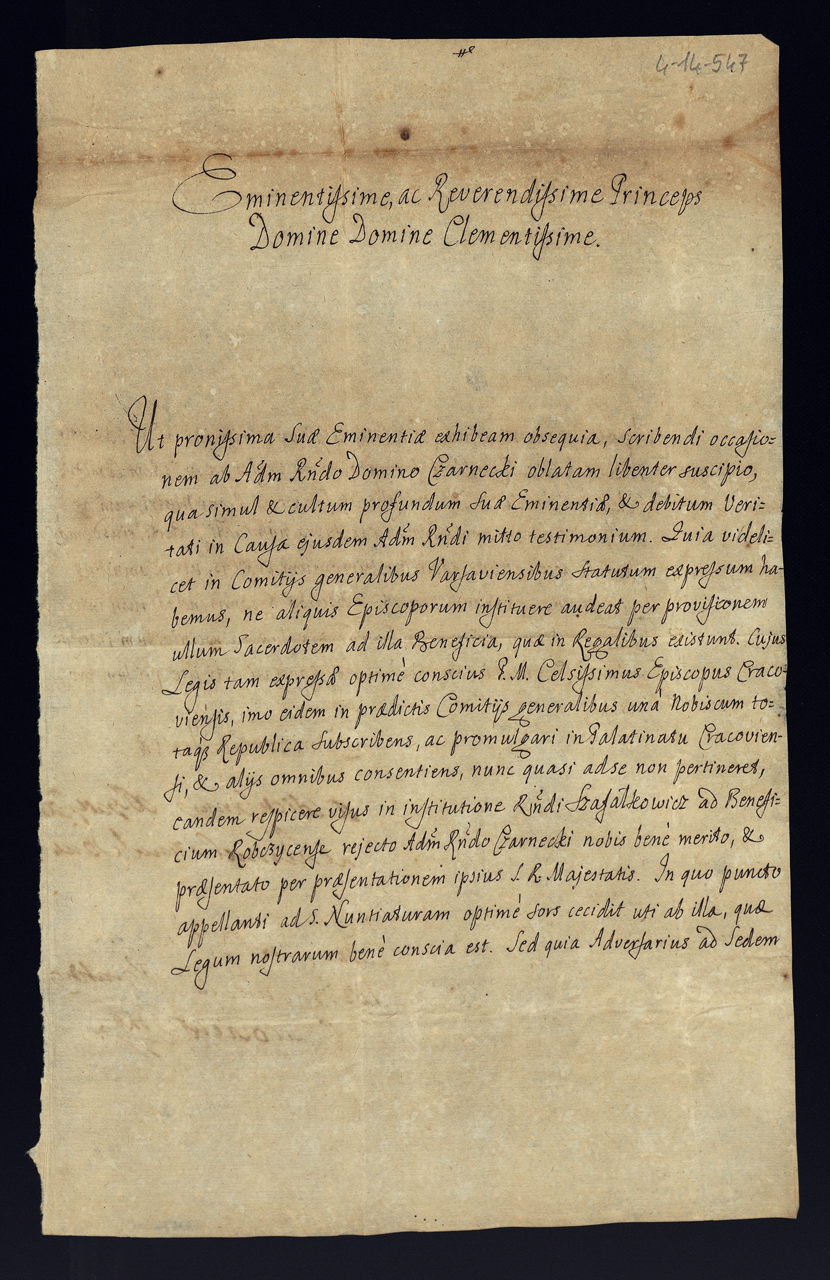 4-14-547
Eminentissime, ac Reverendissime Princeps
Domine Domine Clementissime.
Ut pronissima Suæ Eminentiæ exhibeam obsequia, scribendi occasio=
nem ab Adm̃ Rñdo Domino Czarnecki oblatam libenter suscipio,
qua simul & cultum profundum Suæ Eminentiæ, & debitum Veri=
tati in Causa ejusdem Adm̃ Rñdi mitto testimonium. Quia videli=
cet in Comitijs generalibus Varsaviensibus Statutum expressum ha=
bemus, ne aliquis Episcoporum instituere audeat per provisionem
ullum Sacerdotem ad illa Beneficia, quæ in Regalibus existunt. Cujus
Legis tam expressæ optimè conscius P. M. Celsissimus Episcopus Craco=
viensis, imo eidem in prædictis Comitijs generalibus unà Nobiscum to=
taqȝ Republica Subscribens, ac promulgari in Palatinatu Cracovien=
si, & alijs omnibus consentiens, nunc quasi ad se non pertineret,
eandem respicere visus in institutione Rñdi Szafałkowicz ad Benefi=
cium Robczycense rejecto Adm̃ Rñdo Czarnecki nobis benè merito, &
præsentato per præsentationem ipsius S. R. Majestatis. In quo puncto
appellanti ad S. Nuntiaturam optimè sors cecidit uti ab illa, quæ
Legum nostrarum benè conscia est. Sed quia Adversarius ad Sedem